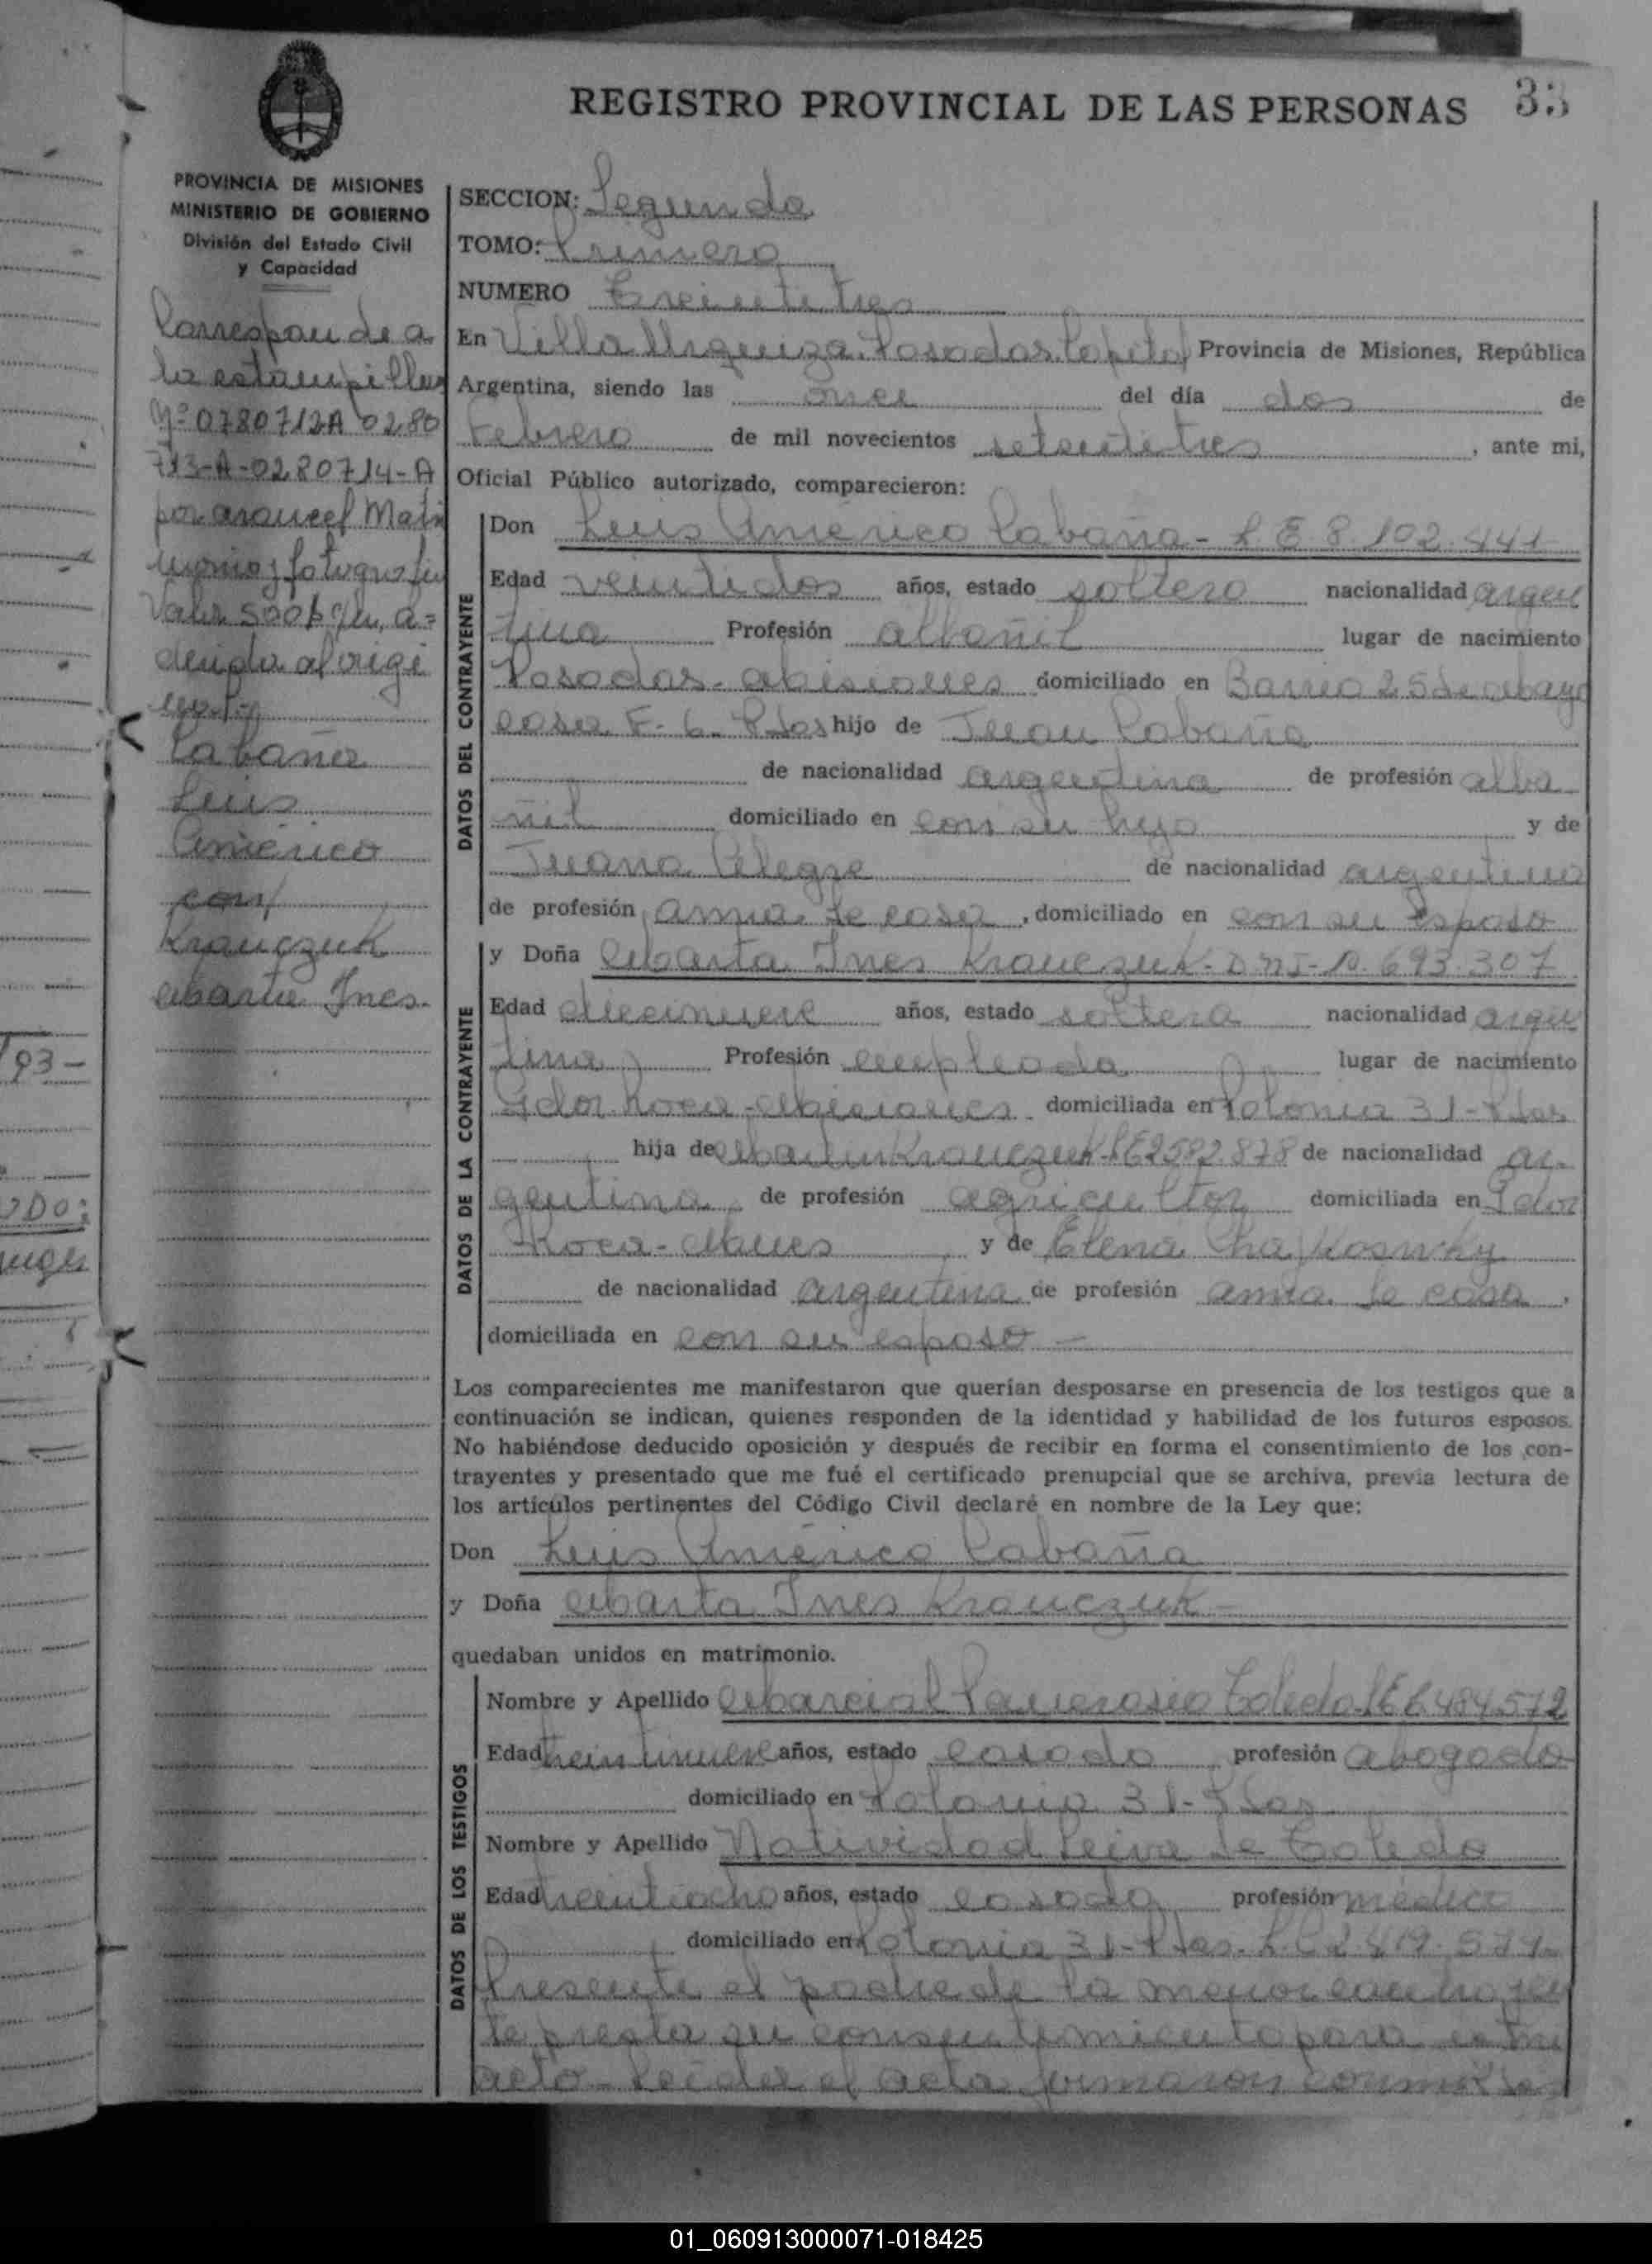 REGISTRO PROVINCIAL DE LAS PERSONAS 33
PROVINCIA DE MISIONES
MINISTERIO DE GOBIERNO
División del Estado Civil
y Capacidad
Correspon de a
la estampillas
Nº 0780712A 0280
713-A-0280714-A
por arancel Matri
monio y fotografia
Valor 500 $ m/n, a=
derida al origi
Cabaña
Luis
Américo
con/
Krauczuk
Marta Ines.
SECCION: Segunda
TOMO: Primero
NUMERO Treintitres
En Villa Urquiza. Posadas. Capital Provincia de Misiones, República
Argentina, siendo las once del día dos de
Febrero de mil novecientos setentitres, ante mi,
Oficial Público autorizado, comparecieron:
DATOS DEL CONTRAYENTE
Don Luis Américo Cabaña - L E 8.102.441
Edad veintidos años, estado soltero nacionalidad argen
tina Profesión albañil lugar de nacimiento
Posadas - Misiones domiciliado en Barrio 25 de Mayo
casa F. 6. Pdas hijo de Juan Cabaña
de nacionalidad argentina de profesión alba
ñil domiciliado en con su hijo y de
Juana Alegre de nacionalidad argentina
de profesión ama de casa, domiciliado en con su esposo
DATOS DE LA CONTRAYENTE
y Doña Marta Ines Krauczuk - D N I - 10.693.307
Edad diecinueve años, estado soltera nacionalidad argen
tina Profesión empleada lugar de nacimiento
Gdor Roca - Misiones domiciliada en Polonia 31 - Pdas
hija de Martin Krauczuk L E 2582.878 de nacionalidad ar-
gentina, de profesión agricultor domiciliada en Gdor
Roca - Mnes y de Elena
de nacionalidad argentina de profesión ama de casa,
domiciliada en con su esposo -
Los comparecientes me manifestaron que querían desposarse en presencia de los testigos que a
continuación se indican, quienes responden de la identidad y habilidad de los futuros esposos.
No habiéndose deducido oposición y después de recibir en forma el consentimiento de los con-
trayentes y presentado que me fué el certificado prenupcial que se archiva, previa lectura de
los artículos pertinentes del Código Civil declaré en nombre de la Ley que:
Don Luis Américo Cabaña
y Doña Marta Ines Krauczuk -
quedaban unidos en matrimonio.
DATOS DE LOS TESTIGOS
Nombre y Apellido Marcial Toledo L E 6.484.572
Edad treintinueve años, estado casado profesión abogado
domiciliado en Polonia 31 - Pdas
Nombre y Apellido Natividad Leiva de Toledo
Edad treintiocho años, estado casada profesión médico
domiciliado en Polonia 31 - Pdas. L.C 2.419.
Presente el padre de la menor contrayen
te presta su consentimiento para este
acto - Leida el acta firmaron conmigo
93-
01_060913000071-018425